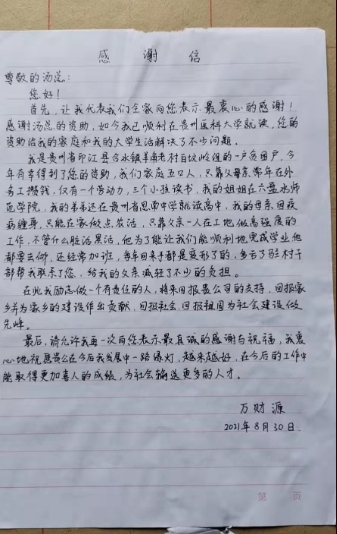 感谢信
尊敬的汤总:
您好!
首先,让我代表我们全家向您表示最衷心的感谢!
感谢汤总的资助,如今我已顺利在贵州医科大学就读,您的
资助给我的家庭和我的大学生活解决了不少问题。
我是贵州省印江县合水镇羊 老村白 组的一户贫困户,今
年有幸得到了您的资助,我们家庭五口人,只靠父母亲常年在外
务工攒钱,仅有一个劳动力,三个小孩读书,我的姐姐在六盘水师
范学院,我的弟弟还在贵州省思南中学就读高中,我的母亲因疾
病缠身,只能在家做点农活,只靠父亲一人在工地做高强度的
工作,不管什么脏活累活,他为了能让我们能顺利地完成学业他
都要去做,还经常加班,每年回来手都是变形了的,多亏了驻村干
部帮我联系了您,给我的父亲减轻了不少的负担。
在此我励志做一个有责任的人,将来回报贵公司的支持,回报家
乡并为家乡的建设作出贡献,回报社会,回报祖国为社会建设做
先峰。
最后,请允许我再一次向您表示最真诚的感谢与祝福,我衷
心地祝愿贵公司在今后发展中一路绿灯,越来越好,在今后的工作中
能取得更加喜人的成绩,为社会输送更多的人才。
万财源
2021年8月30日.
第 页